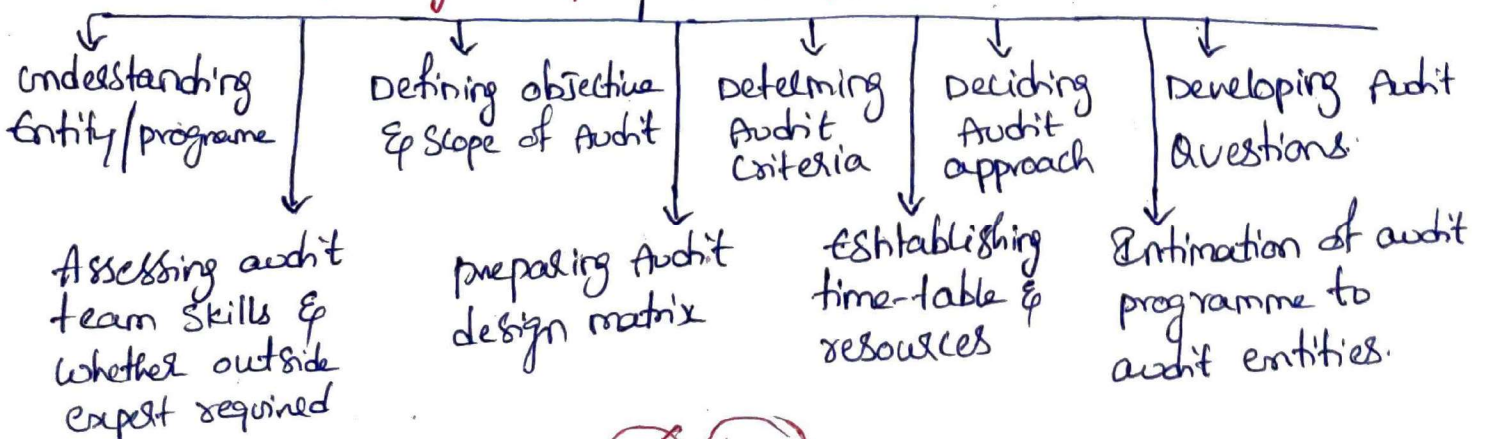 Understanding
Entity/programe
Defining objective
& Scope of Audit
Determing
Audit
Criteria
Deciding
Audit
approach
Developing Audit
Questions.
Assessing audit
team skills &
whether outside
expert required
preparing Audit
design matrix
Eshtablishing
time-table &
resources
Intimation of audit
programme to
audit entities.